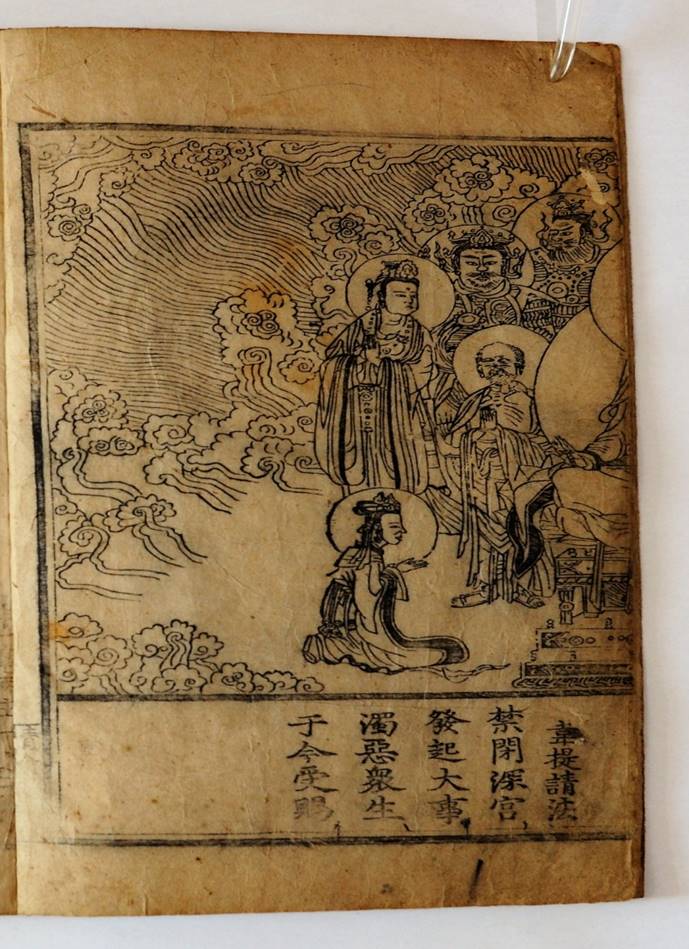 韋提請法
禁閉深宮
發起大事
濁惡衆生
于今受賜